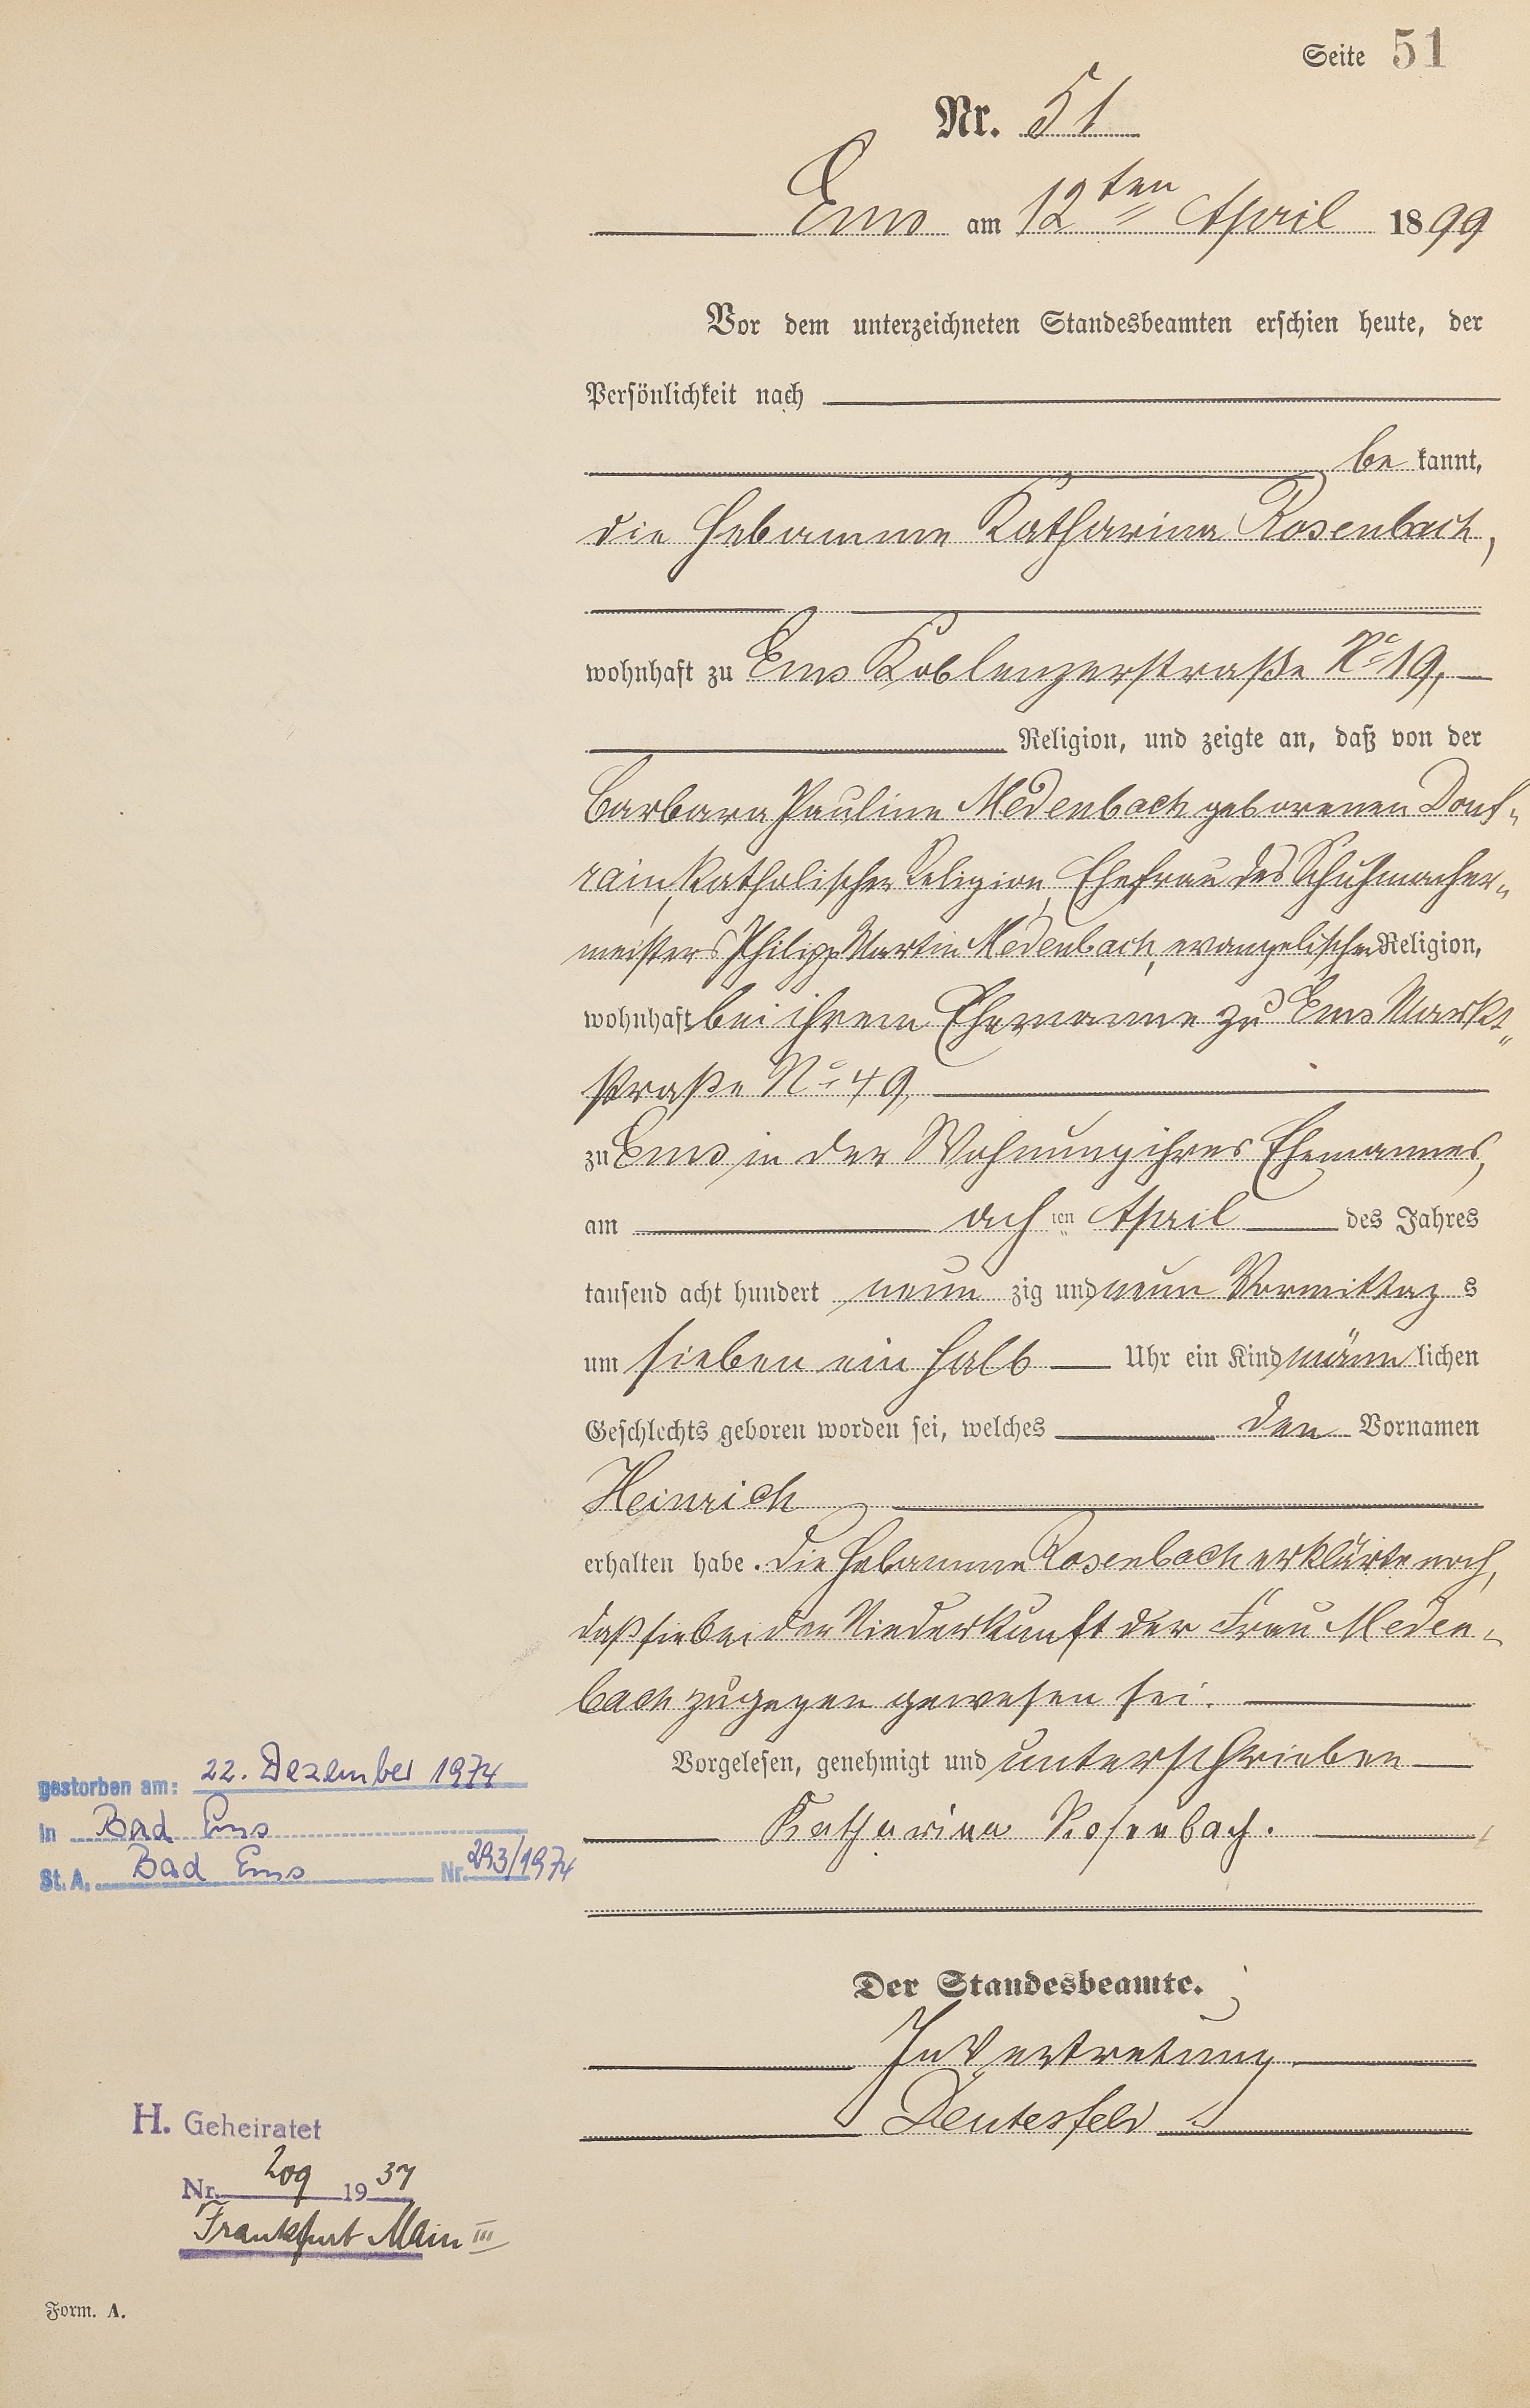 Seite 51
Nr. 51
Ems am 12ten April 1899
Vor dem unterzeichneten Standesbeamten erschien heute, der
Persönlichkeit nach
be kannt,
die Hebamme Katharina Rosenbach,
wohnhaft zu Ems Koblenzerstraße No 19,
Religion, und zeigte an, daß von der
Barbara Pauline Medenbach geborenen Donf-
rain, katholischer Religion, Ehefrau des Schuhmacher-
meisters Philipp Martin Medenbach, evangelischer Religion,
wohnhaft bei ihrem Ehemanne zu Ems Markt-
straße No 49,
zu Ems in der Wohnung ihres Ehemannes,
am achten April des Jahres
tausend acht hundert neun zig und neun Vormittag s
um sieben ein halb Uhr ein Kind männ lichen
Geschlechts geboren worden sei, welches den Vornamen
Heinrich
erhalten habe. Die Hebamme Rosenbach erklärte noch,
daß sie bei der Niederkunft der Frau Meden-
bach zugegen gewesen sei.
Vorgelesen, genehmigt und unterschrieben
Katharina Rosenbach.
Der Standesbeamte.
In Vertretung.
gestorben am: 22. Dezember 1974
in Bad Ems
St. A. Bad Ems Nr. 293/1974
H. Geheiratet
Nr. 209 1937
Frankfurt Main III
Form. A.